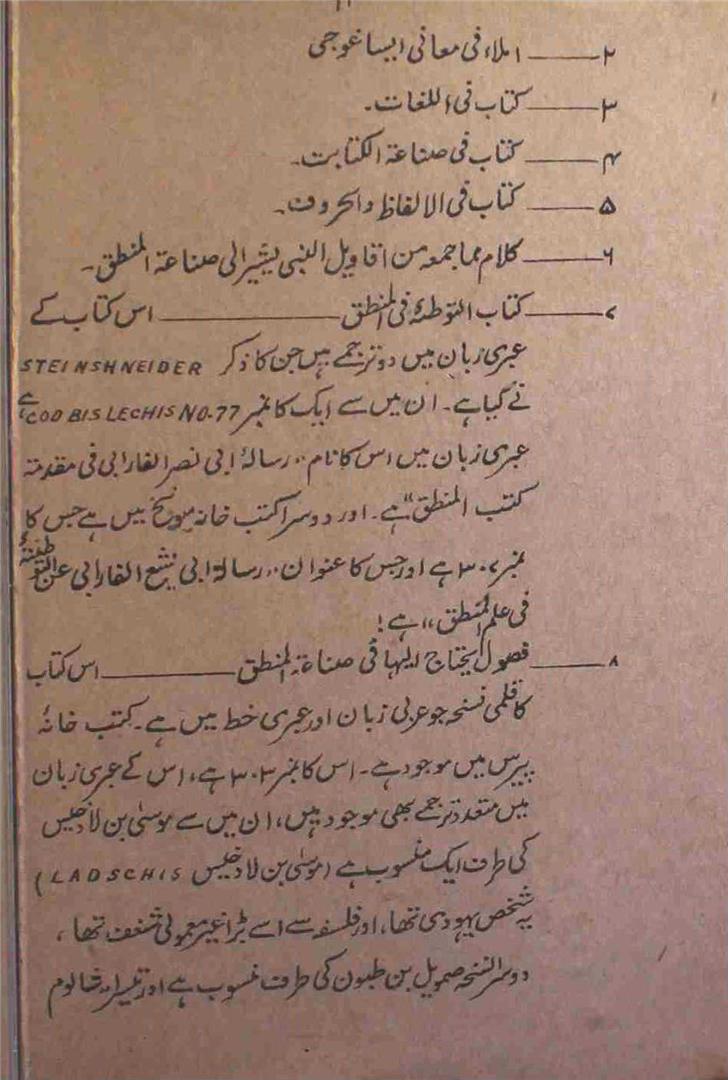 ۱۱
۲——املاء فی معانی ایساغوجی
۳——کتاب فی اللغات۔
۴——کتاب فی صناعۃ الکتابت۔
۵——کتاب فی الالفاظ والحروف۔
۶——کلام مما جمعہ من اقاویل النبی یشیر الی صناعۃ المنطق۔
۷——کتاب التوطئۃ فی المنطق————اس کتاب کے
عبری زبان میں دو ترجمے ہیں جن کا ذکر STEINSHNEIDER
نے کیا ہے۔ ان میں سے ایک کا نمبر COD BIS LECHIS NO.77 ہے
عبری زبان میں اس کا نام "رسالۂ ابی نصر الفارابی فی مقدمۃ
کتب المنطق" ہے۔ اور دوسرا کتب خانہ میونخ میں ہے جس کا
نمبر ۳۰۷ ہے اور جس کا عنوان "رسالۂ ابی نشع الفارابی عن التوطیئۃ
فی علم المنطق" ہے!
۸——فصول یحتاج الیہا فی صناعۃ المنطق————اس کتاب
کا قلمی نسخہ جو عربی زبان اور عبری خط میں ہے۔ کتب خانۂ
پیرس میں موجود ہے۔ اس کا نمبر ۳۰۳ ہے، اس کے عبری زبان
میں متعدد ترجمے بھی موجود ہیں، ان میں سے موسیٰ بن لادخیس
کی طرف ایک منسوب ہے (موسیٰ بن لادخیس LADSCHIS)
یہ شخص یہودی تھا، اور فلسفہ سے اسے بڑا غیر معمولی شغف تھا،
دوسرا نسخہ صمویل بن طبون کی طرف منسوب ہے اور تیسرا شالوم